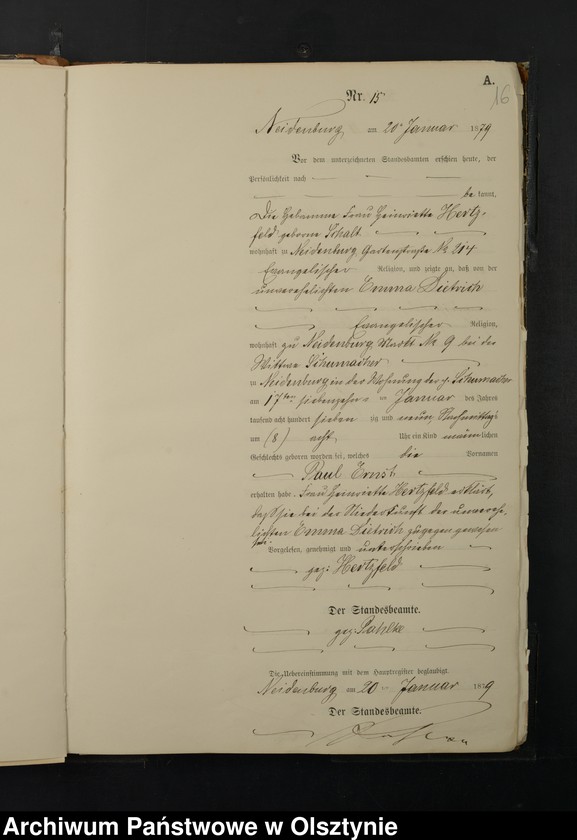 A.
16
Nr. 15
Neidenburg am 20 Januar 1879
Vor dem unterzeichneten Standesbeamten erschien heute, der
Persönlichkeit nach
be kannt,
Die Hebamme Frau Heinriette Hertz-
feld geborne Schalt
wohnhaft in Neidenburg Gartenstraße № 214
Evangelischer Religion, und zeigte an, daß von der
unverehelichten Emma Dietrich
Evangelischer Religion,
wohnhaft zu Neidenburg Markt № 9 bei der
Wittwe Schumacher
in Neidenburg in der Wohnung der p. Schumacher
am 17ten siebenzehn Januar des Jahres
tausend acht hundert sieben zig und neun Nachmittags
um (8) acht Uhr ein Kind männ lichen
Geschlechts geboren worden sei, welches die Vornamen
Paul Ernst
erhalten habe. Frau Heinriette Hertzfeld erklärt,
daß sie bei der Niederkunft der unverehe-
lichten Emma Dietrich zugegen gewesen
sei.
Vorgelesen, genehmigt und unterschrieben
gez: Hertzfeld
Der Standesbeamte.
gez Pahlke
Die Uebereinstimmung mit dem Hauptregister beglaubigt.
Neidenburg am 20 Januar 1879
Der Standesbeamte.
Archiwum Państwowe w Olsztynie